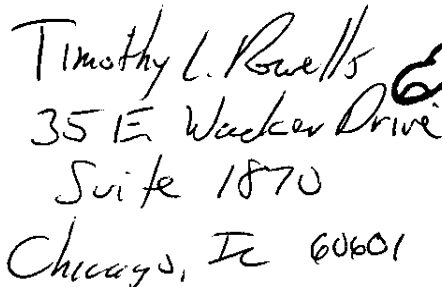 Timothy L. Powells
35 E. Wacker Drive
Suite 1870
Chicago, IL 60601